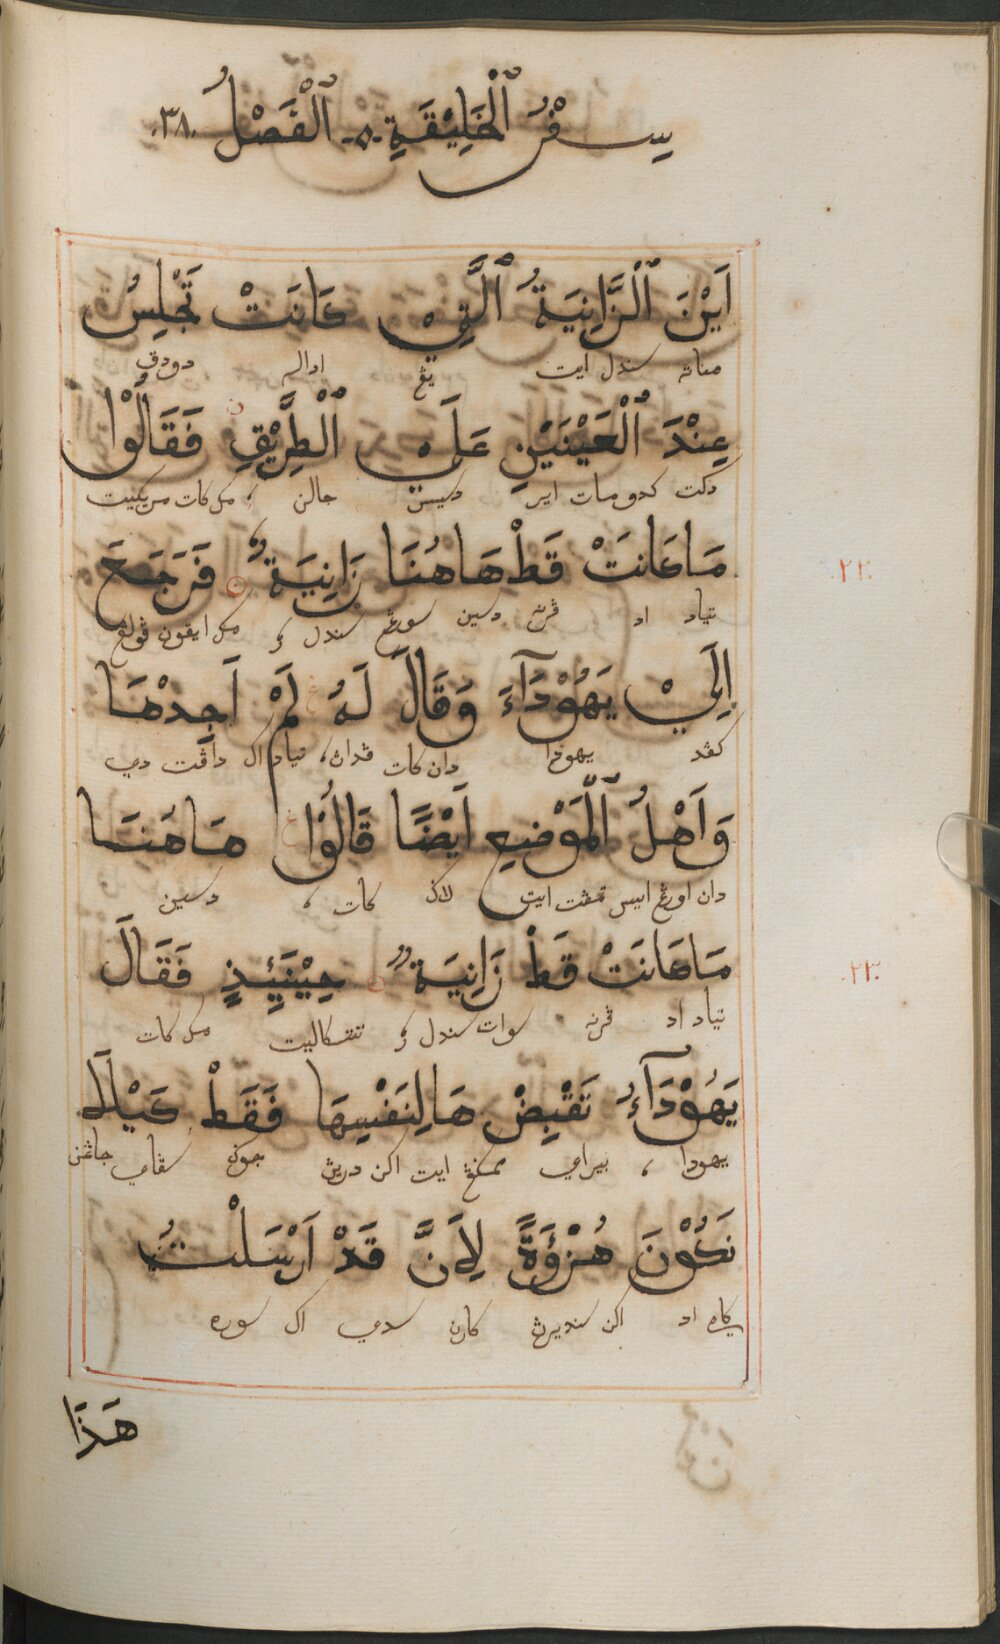 سِفْرُ ٱلْخَلِيْقَةِ ۵ ٱلْفَصْلُ ٣٨
اَيْنَ ٱلزَّانِيَةُ ٱلَّتِيْ كَانَتْ تَجْلِسُ
مناڽ سندل ايت يڠ اداله دودق
عِنْدَ ٱلْعَيْنَيْنِ عَلَي ٱلْطَّرِيْقِ فَقَالُوْا
دكت كدو مات اير دسيسي جالن ، مك كات مريكيت
مَا كَانَتْ قَطْ هَاهُنَا زَانِيَةٌ فَرَجَعَ
٢٢
تياد اد ڤرنه دسين سورڠ سندل ، مك ايڤون ڤولڠ
اِلَيْ يَهُوْدَآءَ وَقَالَ لَهُ لَمْ اَجِدْهَا
كڤد يهودا دان كات ڤداڽ، تياد اك داڤت دي
وَاَهْلُ ٱلْمَوْضِعِ اَيْضًا قَالُوْا هَاهُنَا
دان اورڠ ايسي تمڤت ايت لاڬي كات ، دسين
مَا كَانَتْ قَطْ زَانِيَةٌ حِيْنَئِذٍ فَقَالَ
٢٣
تياد اد ڤرنه سوات سندل ، تتكاليت مك كات
يَهُوْدَآءُ تَقْبِضْ هَا لِنَفْسِهَا فَقَطْ كَيْلَا
يهودا ، بيراي ممڬڠ ايت اكن ديريڽ جوݢ سڤاي جاڠن
نَكُوْنَ هُزْؤَةً لِاَنَّ قَدْ اَرْسَلْتُ
كام اد اكن سنديرن كارن سدي اك سوره
هَذَا